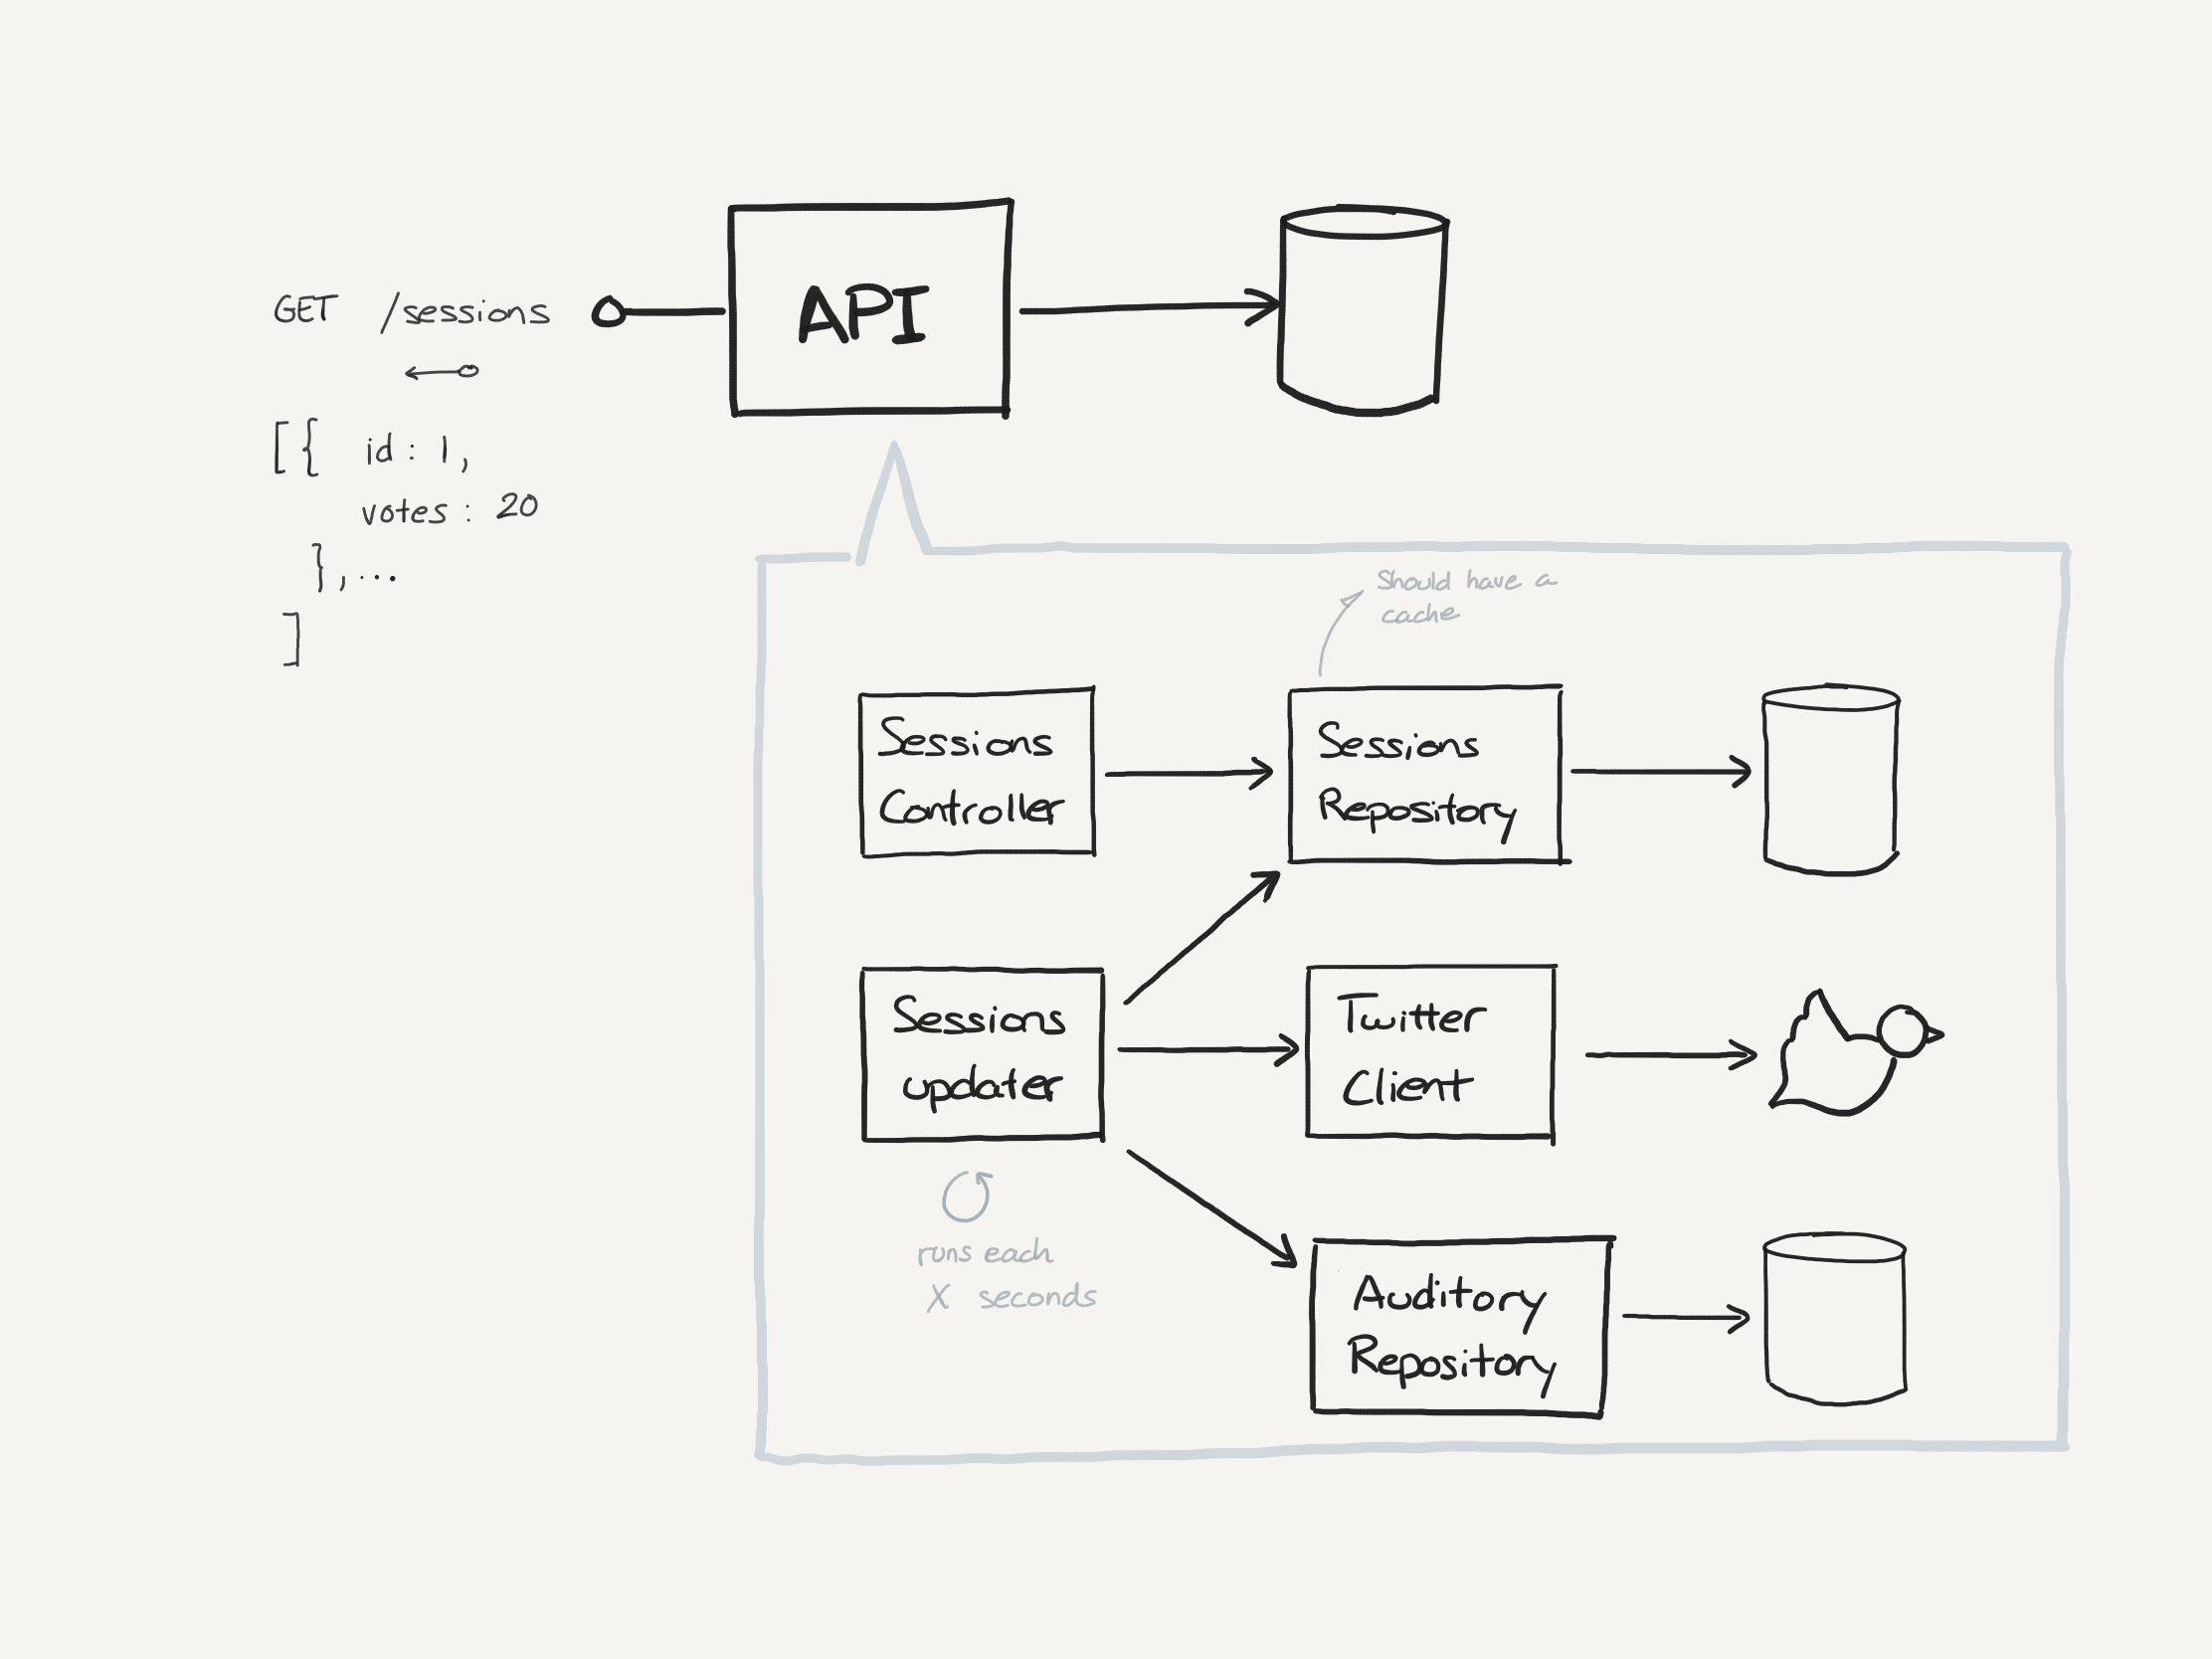 API
GET /sessions
[{ id: 1,
votes: 20
}, ...
]
Should have a
cache
Sessions
Controller
Sessions
Repository
Sessions
updater
Twitter
Client
runs each
X seconds
Auditory
Repository